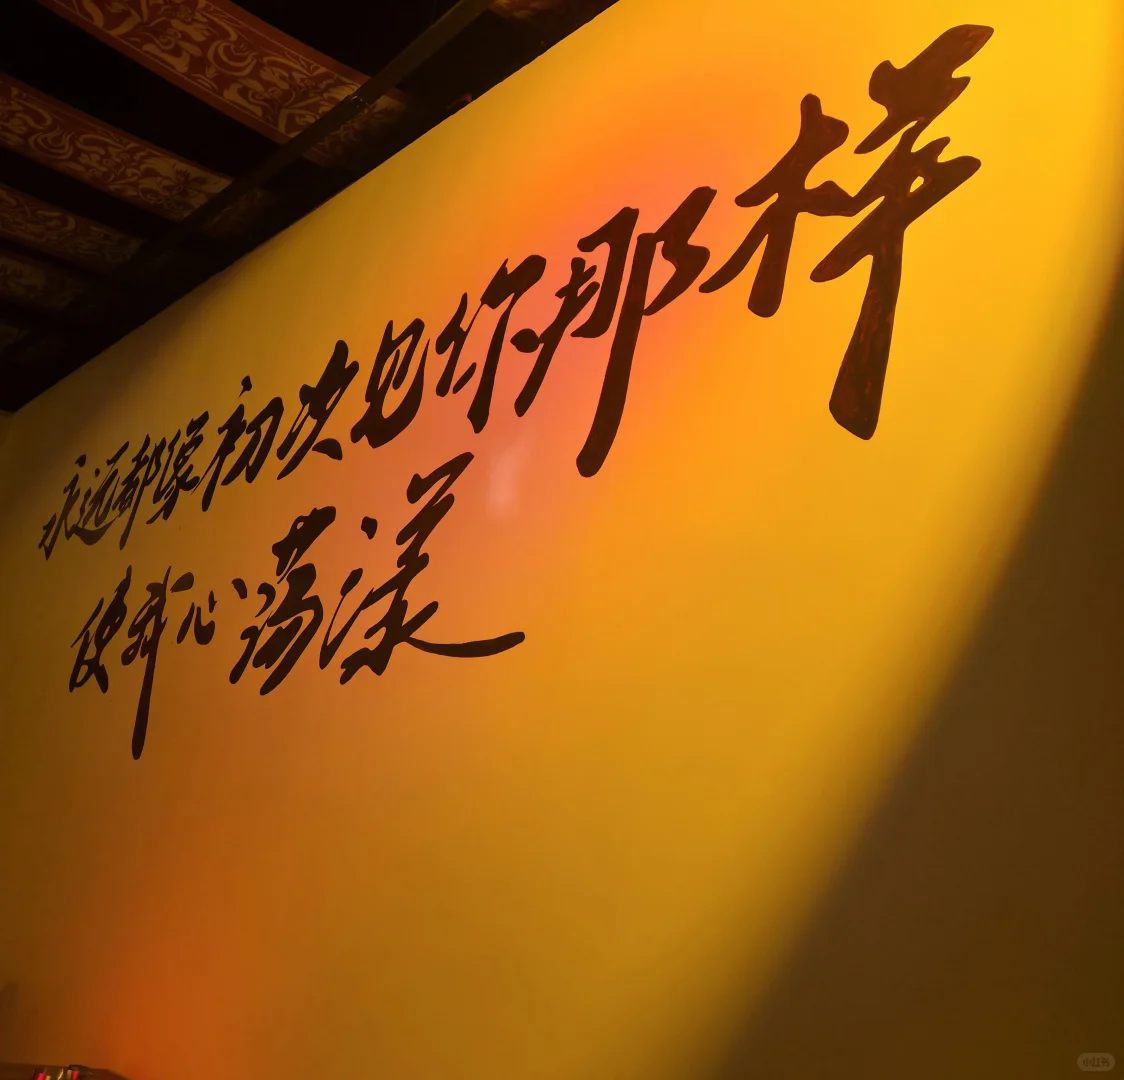 永远都像初次见你那样
使我心荡漾
小红书